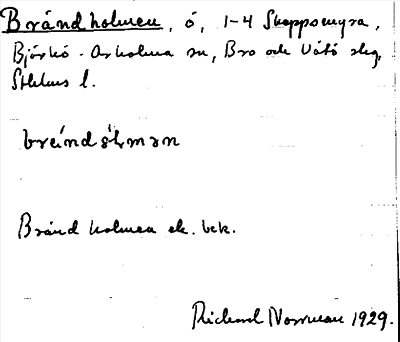 Brándholmen, ö, 1-4 Skeppsmyra,
Björkö-Arholma sn, Bro och Vätö slg,
Sthlms l.
breindhol,mən
Bränd holmen ek. bek.
Richard Norrman 1929.